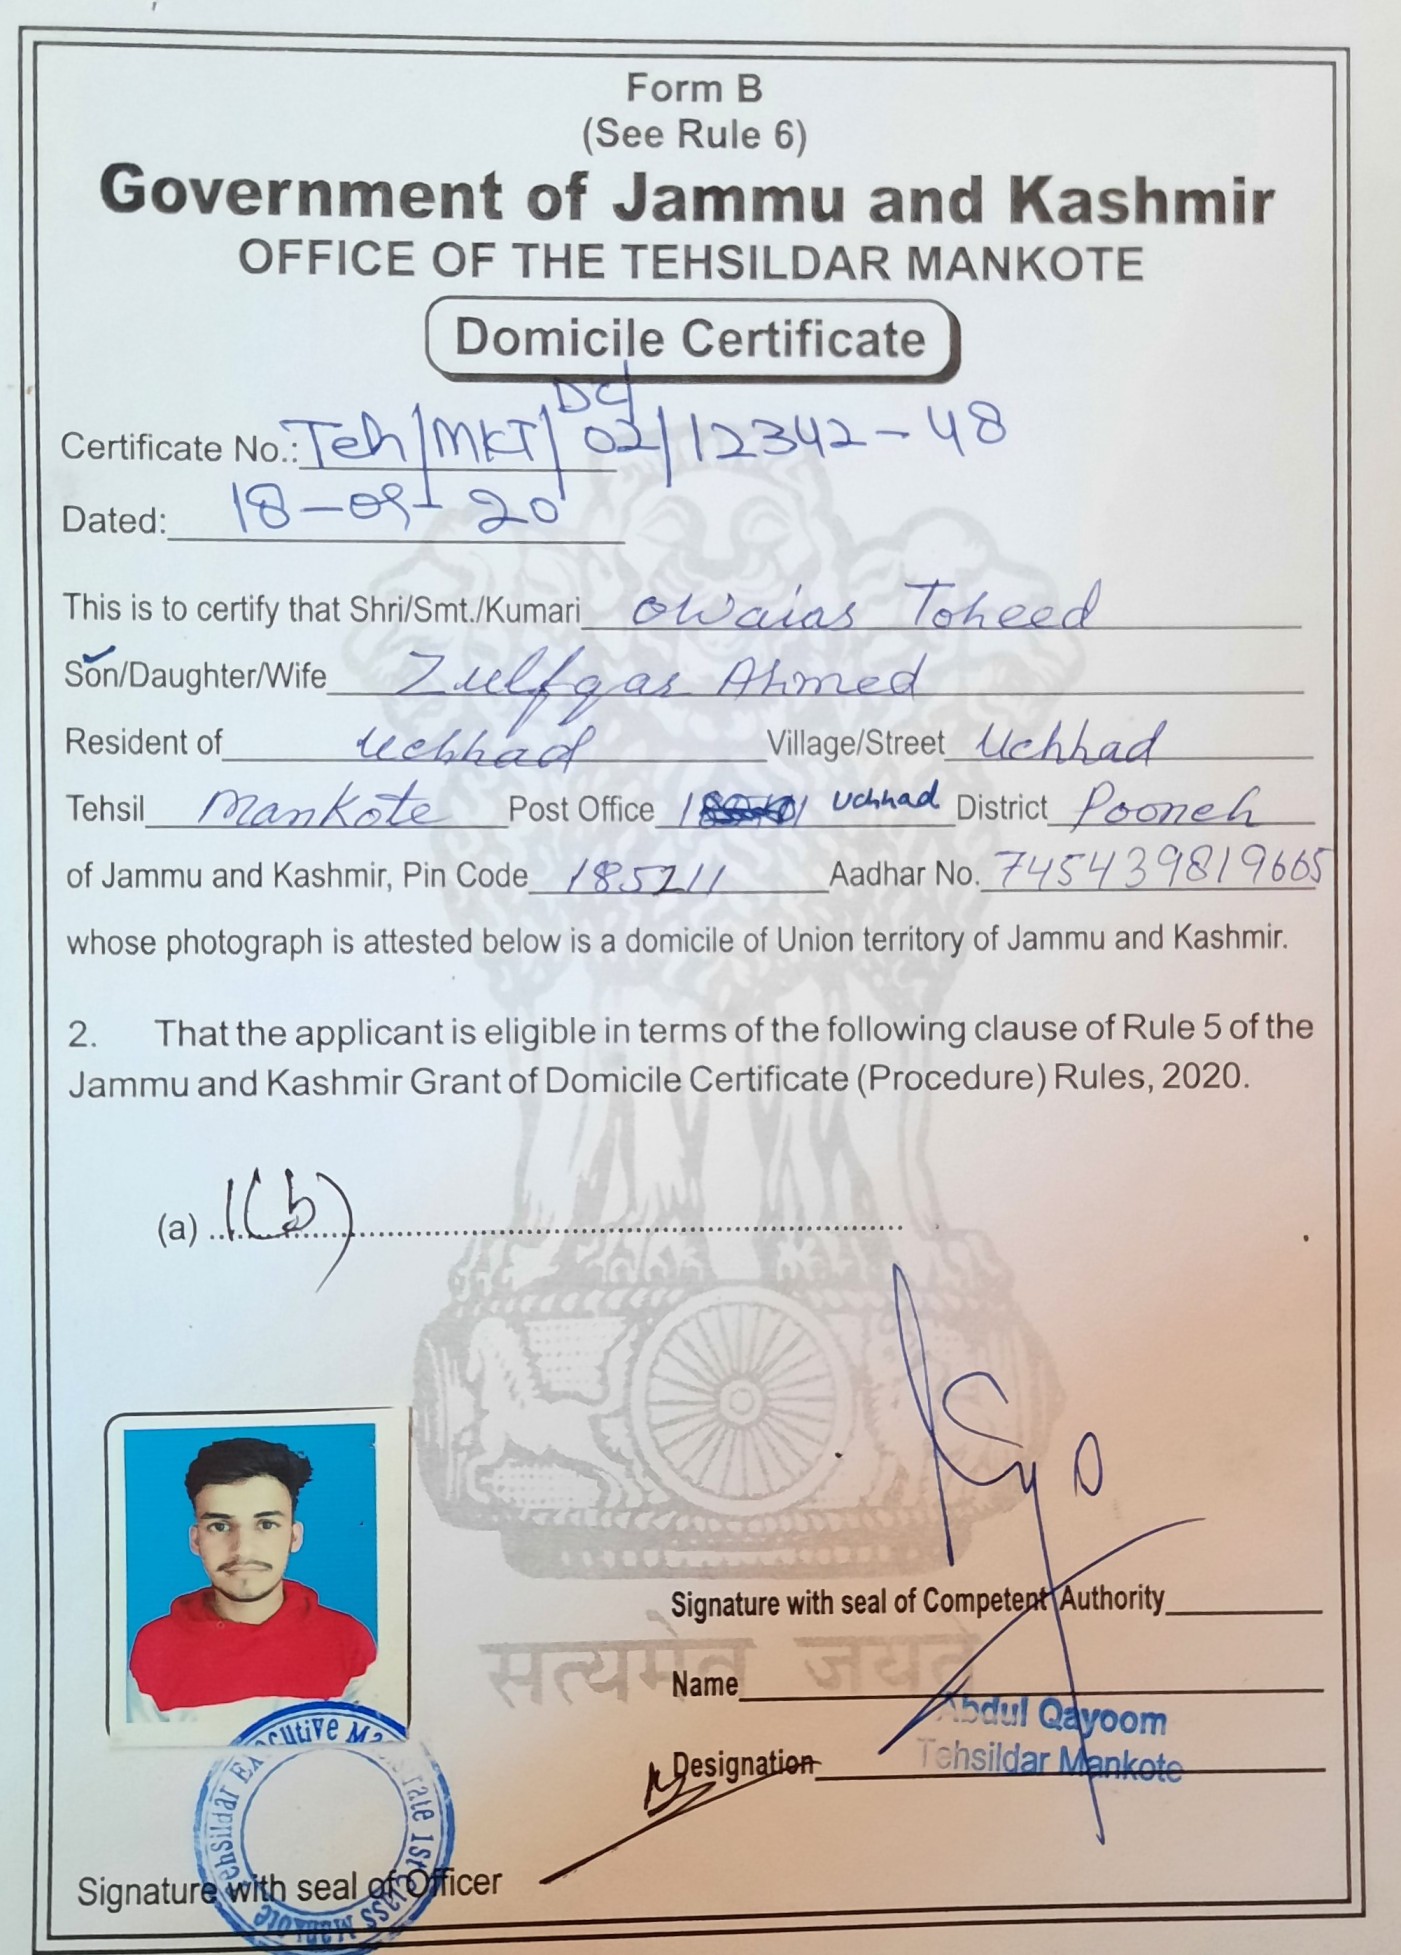 Form B
(See Rule 6)
Government of Jammu and Kashmir
OFFICE OF THE TEHSILDAR MANKOTE
Domicile Certificate
Certificate No.: Teh/MKT/DC/02/12342-48
Dated: 18-09-20
This is to certify that Shri/Smt./Kumari Owaias Toheed
Son/Daughter/Wife Zulfqar Ahmed
Resident of Uchhad Village/Street Uchhad
Tehsil Mankote Post Office Uchhad District Poonch
of Jammu and Kashmir, Pin Code 185211 Aadhar No. 745439819665
whose photograph is attested below is a domicile of Union territory of Jammu and Kashmir.
2. That the applicant is eligible in terms of the following clause of Rule 5 of the
Jammu and Kashmir Grant of Domicile Certificate (Procedure) Rules, 2020.
(a) 1(b)
Signature with seal of Competent Authority
सत्यमेव जयते
Name
Abdul Qayoom
Designation Tehsildar Mankote
Tehsildar Executive Magistrate 1st Class Mankote
Signature with seal of Officer